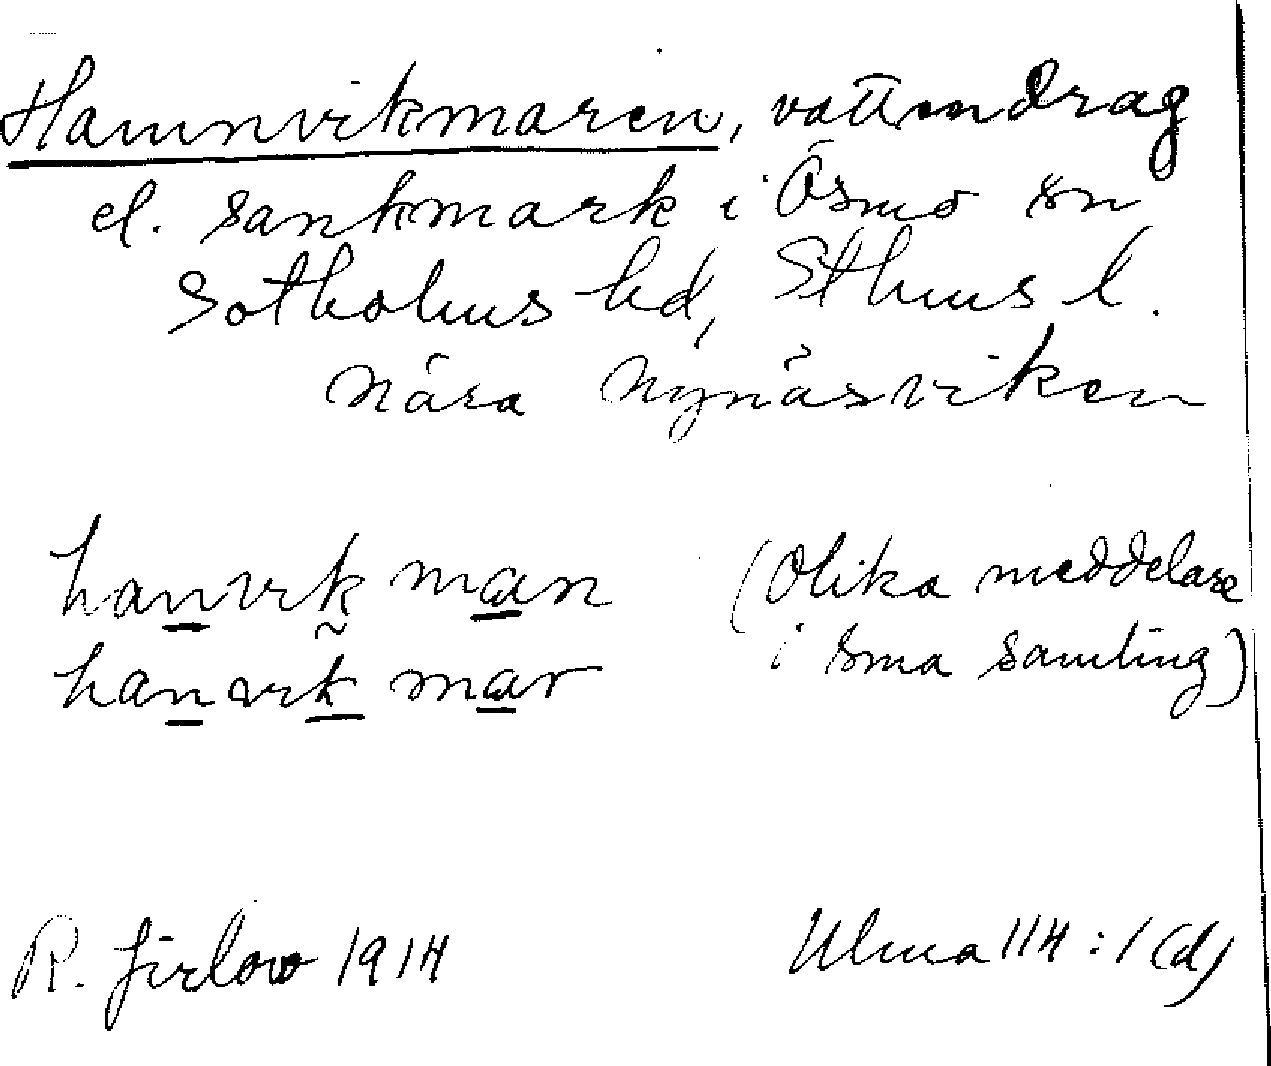 Hamnvikmaren, vattendrag
el. sankmark i Ösmo sn
Sotholms hd, Sthms l.
nära Nynäsviken
hanvik man (Olika meddelare
hanvik mar i sma samling)
R. Jirlow 1914 Ulma 114:1(d)